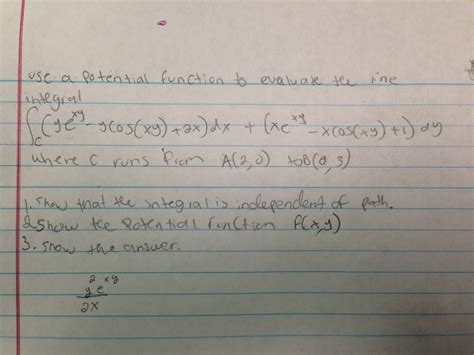 Use a potential function to evaluate the line
integral
∫_C (ye^xy - ycos(xy) + 2x)dx + (xe^xy - xcos(xy) + 1) dy
where C runs from A(2,0) to B(0,3)
1. Show that the integral is independent of path.
2. Show the potential function f(x,y)
3. Show the answer.
y^2 e^xy
2x